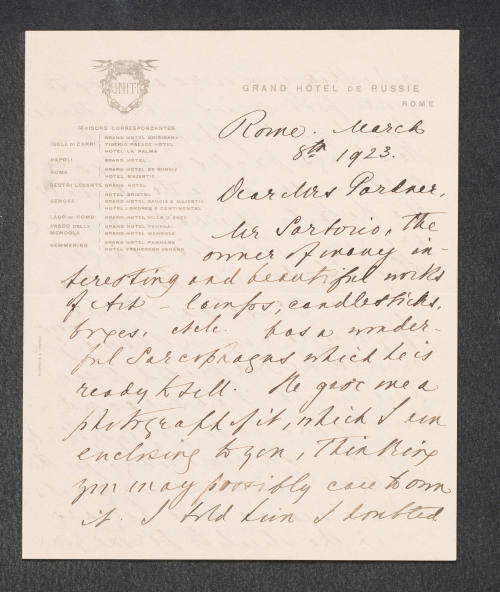 UNITI
GRAND HÔTEL DE RUSSIE
ROME
MAISONS CORRESPONDANTES
ISOLA DI CAPRI GRAND HOTEL QUISISANA
TIBERIO PALACE HOTEL
HOTEL LA PALMA
NAPOLI GRAND HOTEL
ROMA GRAND HOTEL DE RUSSIE
HOTEL MAJESTIC
SESTRI LEVANTE GRAND HOTEL
HOTEL
GENOVA GRAND HOTEL SAVOIE & MAJESTIC
HOTEL LONDRES & CONTINENTAL
LAGO DI COMO GRAND HOTEL VILLA D'ESTE
PASSO DELLA MENDOLA GRAND HOTEL PENEGAL
GRAND HOTEL MENDOLA
SEMMERING GRAND HOTEL PANHANS
HOTEL ERZHERZOG JOHANN
Rome. March
8th 1923.
Dear Mrs Gardner,
Mr Sartorio, the
owner of many in-
teresting and beautiful works
of Art – lamps, candlesticks,
boxes, etc. has a wonder-
ful Sarcophagus which he is
ready to sell. He gave me a
photograph of it, which I am
enclosing to you, thinking
you may possibly care to own
it. I told him I doubted